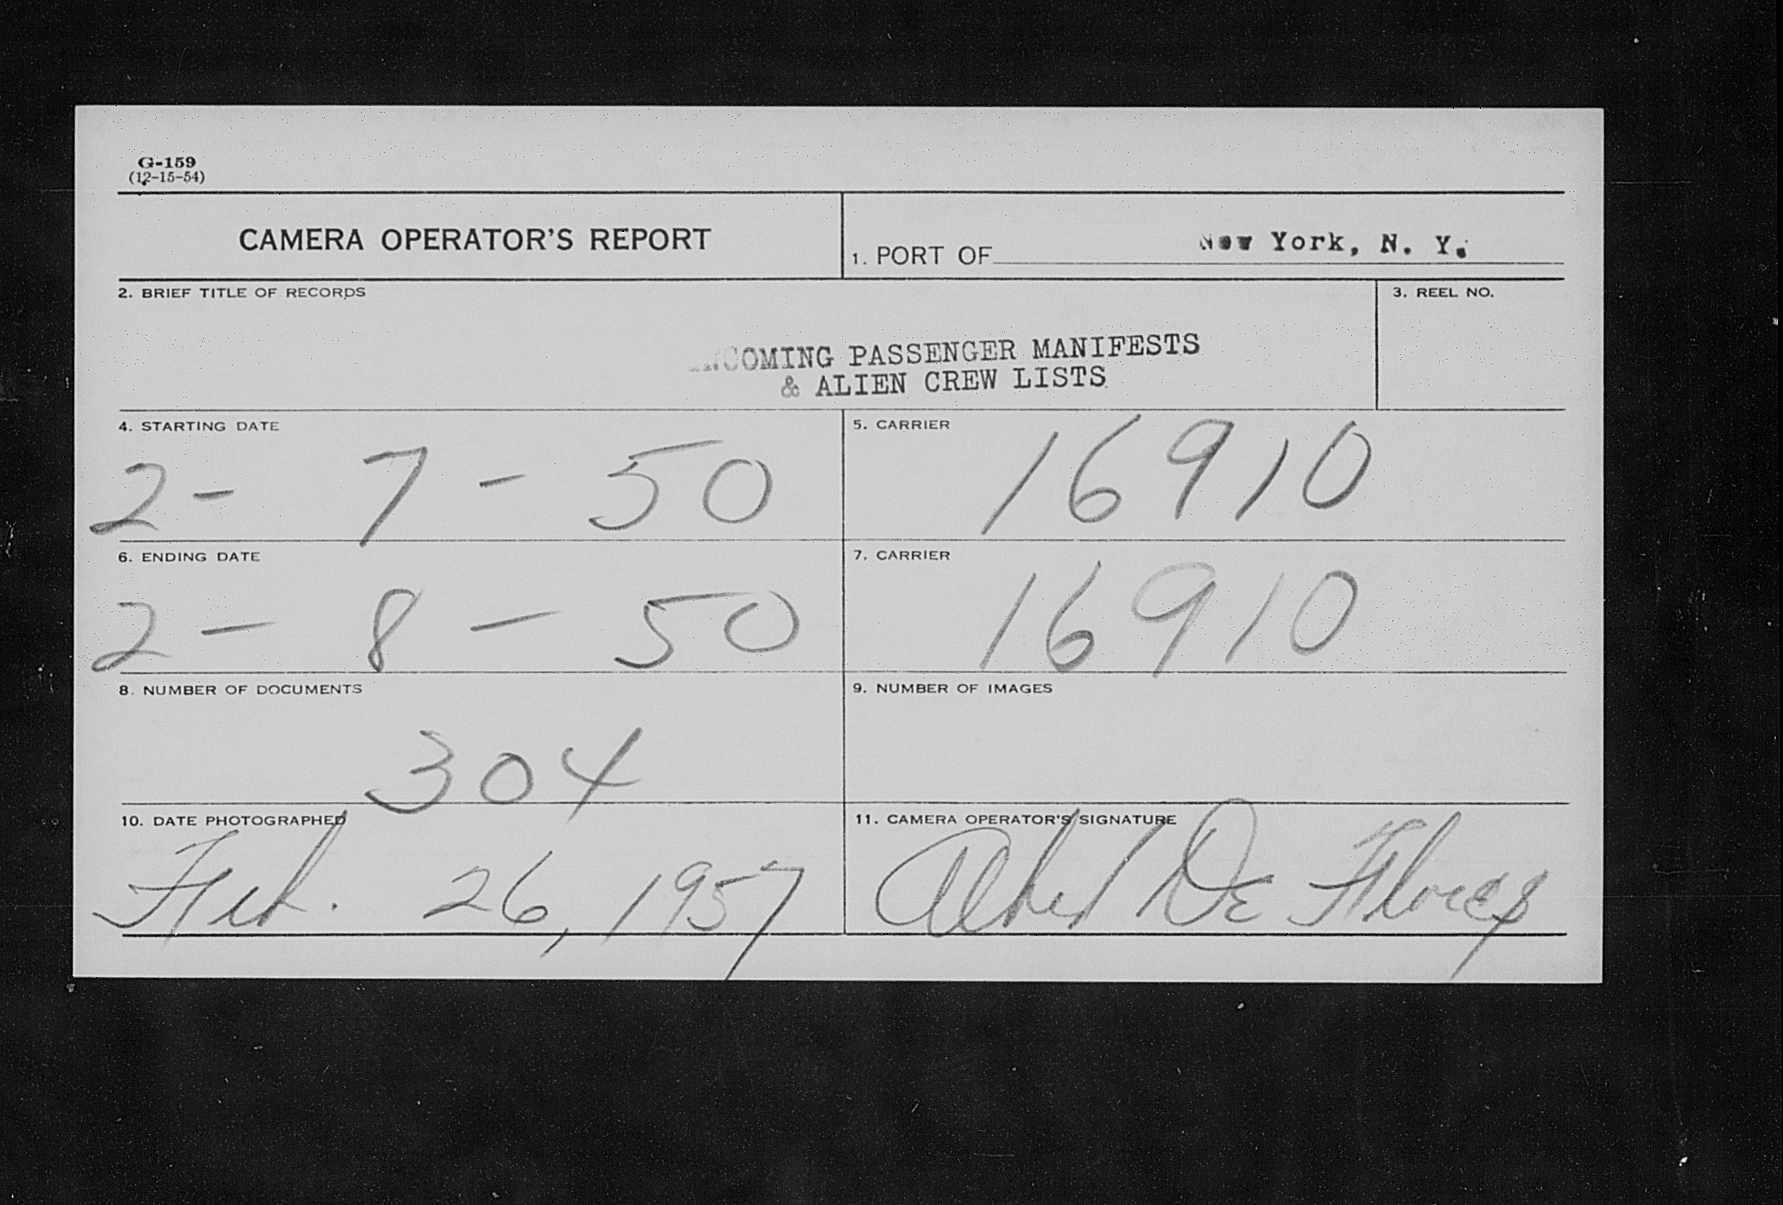 G-159
(12-15-54)
CAMERA OPERATOR'S REPORT
1. PORT OF New York, N. Y.
2. BRIEF TITLE OF RECORDS
3. REEL NO.
INCOMING PASSENGER MANIFESTS
& ALIEN CREW LISTS
4. STARTING DATE
2 - 7 - 50
5. CARRIER
16910
6. ENDING DATE
2 - 8 - 50
7. CARRIER
16910
8. NUMBER OF DOCUMENTS
304
9. NUMBER OF IMAGES
10. DATE PHOTOGRAPHED
Feb. 26, 1957
11. CAMERA OPERATOR'S SIGNATURE
Albert De Flores